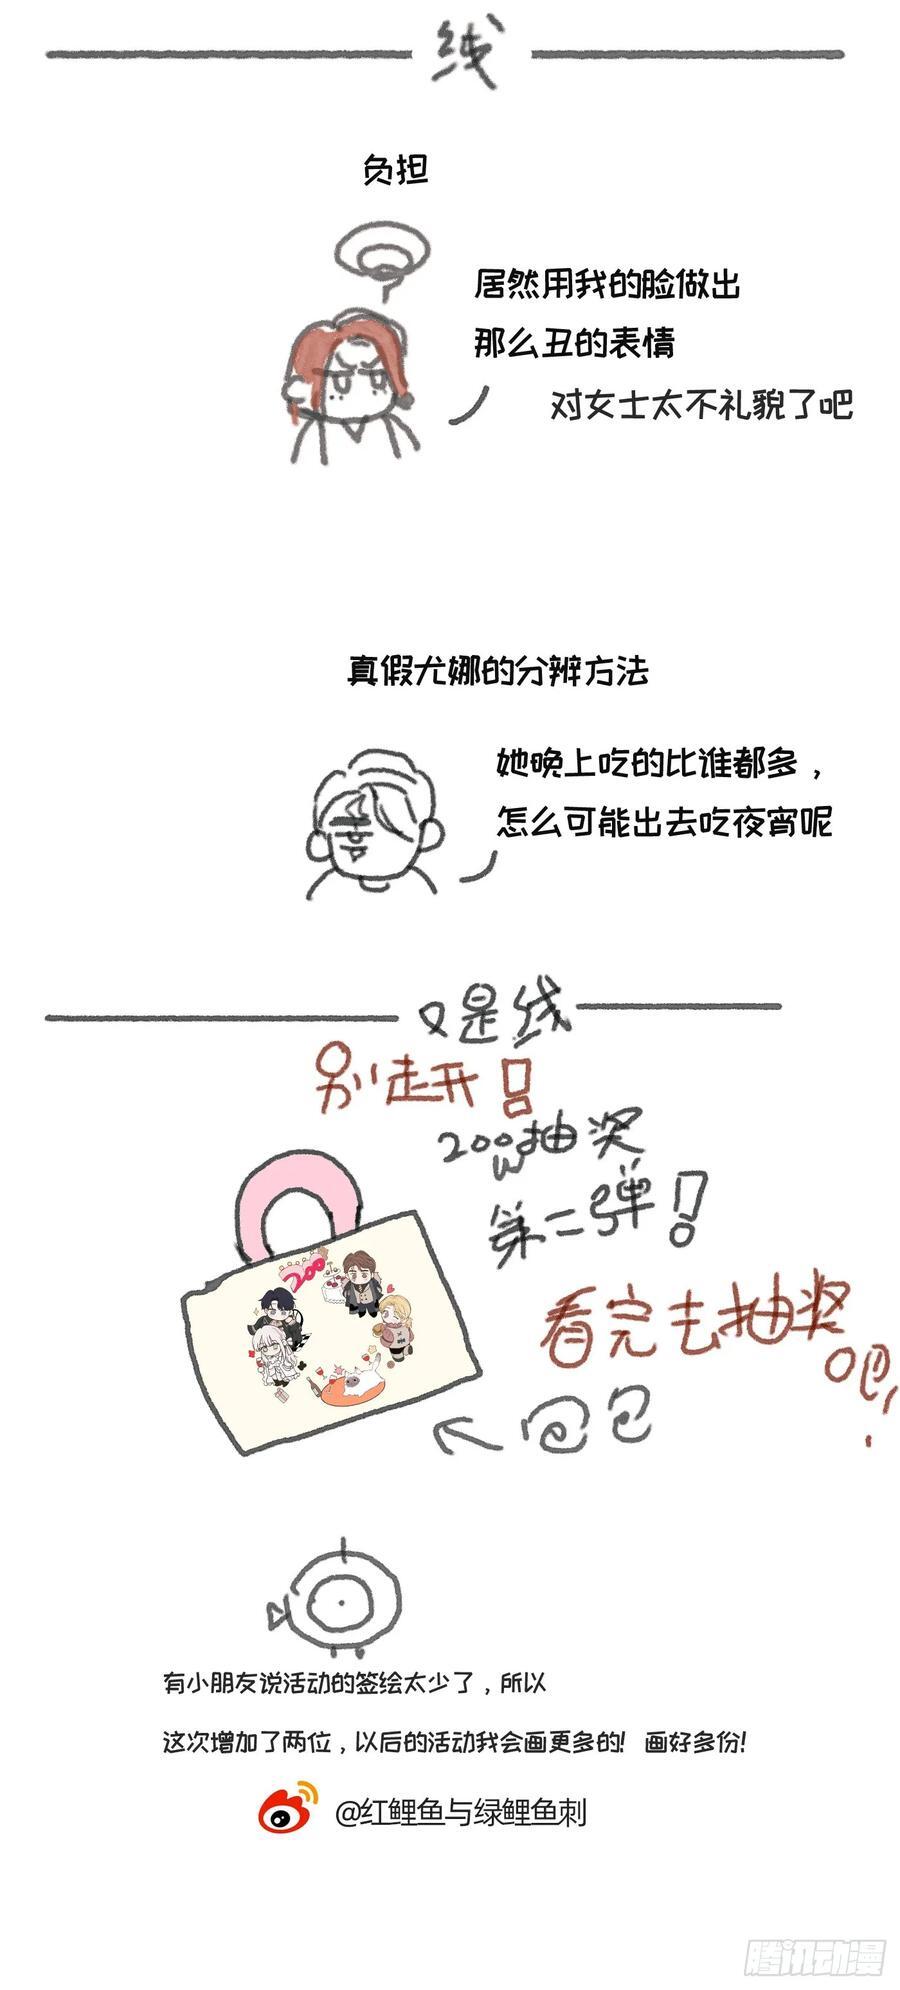 线
负担
居然用我的脸做出
那么丑的表情
对女士太不礼貌了吧
真假尤娜的分辨方法
她晚上吃的比谁都多，
怎么可能出去吃夜宵呢
又是线
别走开！
200w抽奖
第二弹！
200
看完去抽奖
吧！
包包
有小朋友说活动的签绘太少了，所以
这次增加了两位，以后的活动我会画更多的！ 画好多份！
@红鲤鱼与绿鲤鱼刺
腾讯动漫